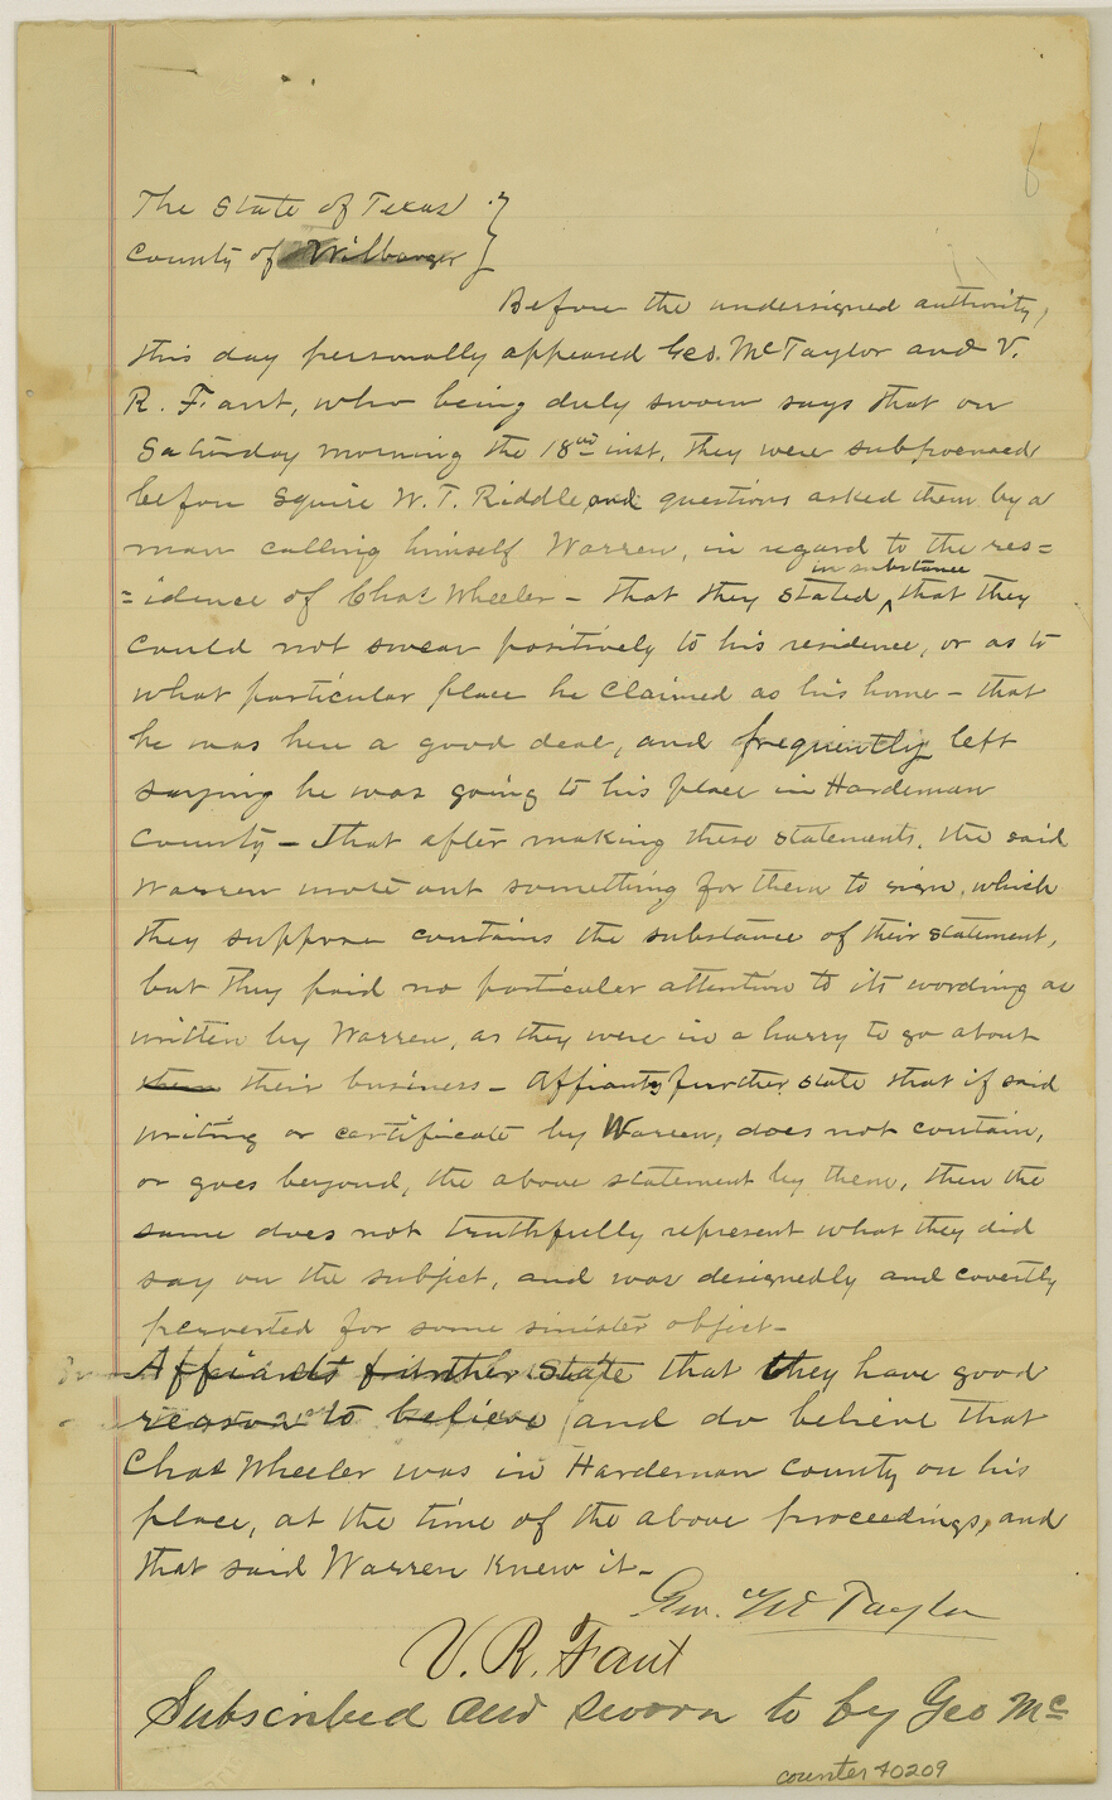 The State of Texas }
County of Wilbarger }
Before the undersigned authority,
this day personally appeared Geo. McTaylor and V.
R. Fant, who being duly sworn says that on
Saturday morning the 18th inst, they were subpoenaed
before Squire W. T. Riddle, and questions asked them by a
man calling himself Warren, in regard to the res=
=idence of Chas Wheeler - that they stated in substance that they
could not swear positively to his residence, or as to
what particular place he claimed as his home - that
he was here a good deal, and frequently left
saying he was going to his place in Hardeman
County - that after making these statements, the said
Warren wrote out something for them to sign, which
they suppose contains the substance of their statement,
but they paid no particular attention to its wording as
written by Warren, as they were in a hurry to go about
them their business - Affiants further state that if said
writing or certificate by Warren, does not contain,
or goes beyond, the above statement by them, then the
same does not truthfully represent what they did
say on the subject, and was designedly and covertly
perverted for some sinister object -
Affiants further State that they have good
reason to believe and do believe that
Chas Wheeler was in Hardeman County on his
place, at the time of the above proceedings, and
that said Warren knew it -
Geo. McTaylor
V. R. Fant
Subscribed and sworn to by Geo Mc
counter 40209